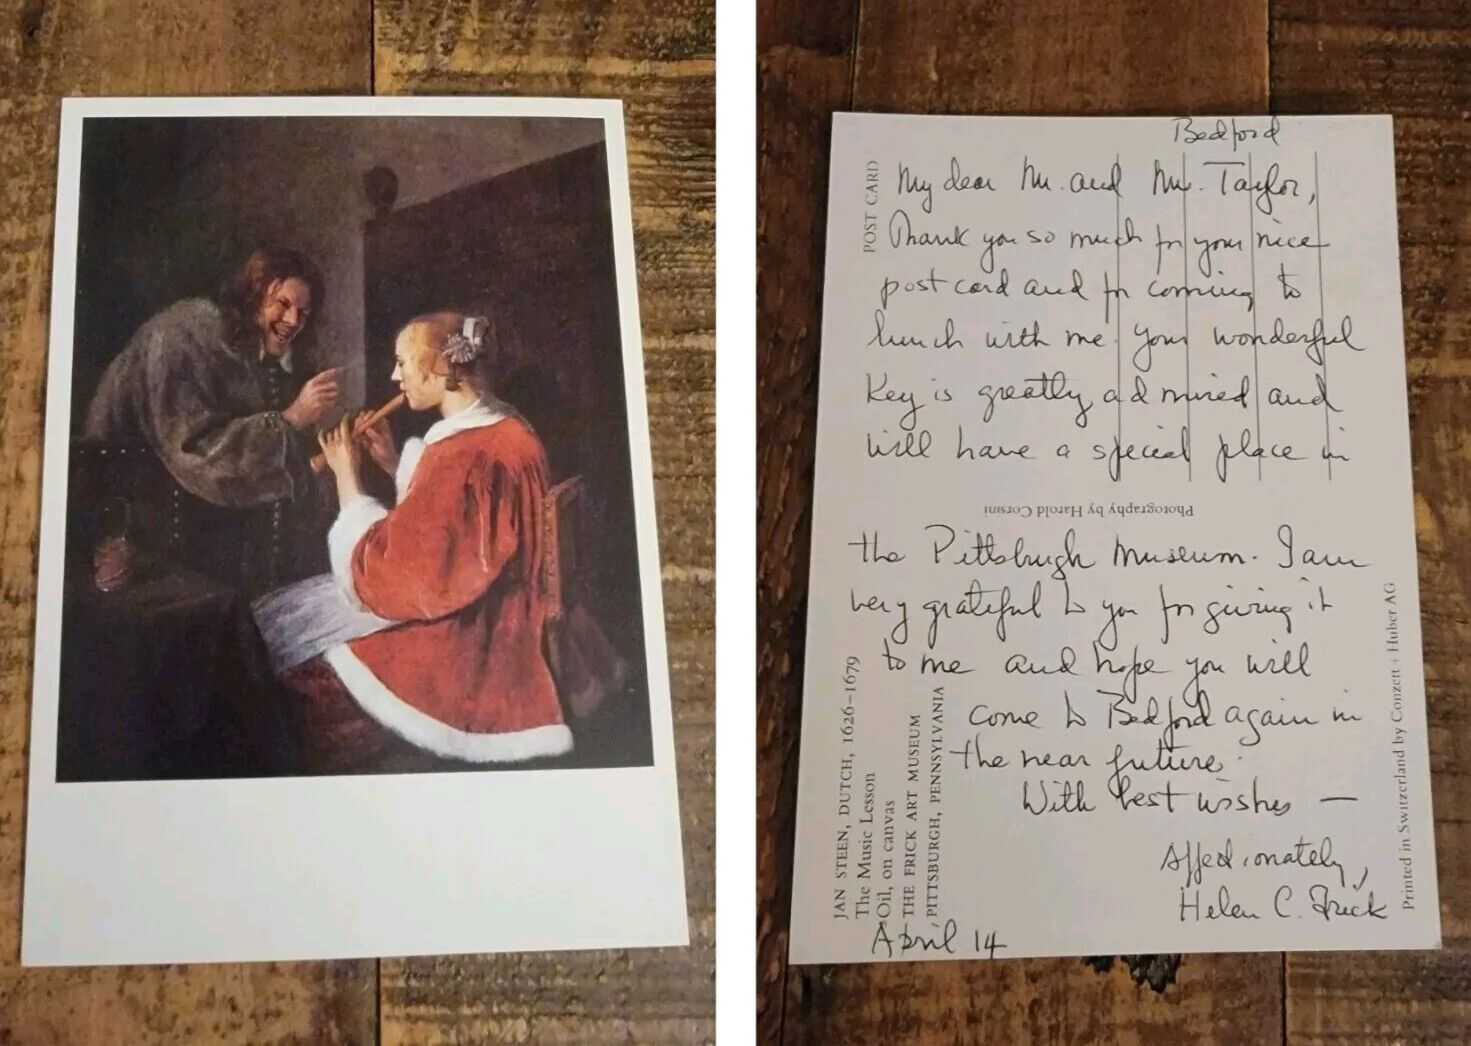 Bedford
My dear Mr. and Mrs. Taylor,
Thank you so much for your nice
post card and for coming to
lunch with me. Your wonderful
Key is greatly admired and
will have a special place in
the Pittsburgh Museum. I am
very grateful to you for giving it
to me and hope you will
come to Bedford again in
the near future.
With best wishes —
Affectionately,
Helen C. Frick
April 14
POST CARD
Photography by Harold Corsini
JAN STEEN, DUTCH, 1626–1679
The Music Lesson
Oil, on canvas
THE FRICK ART MUSEUM
PITTSBURGH, PENNSYLVANIA
Printed in Switzerland by Conzett + Huber AG